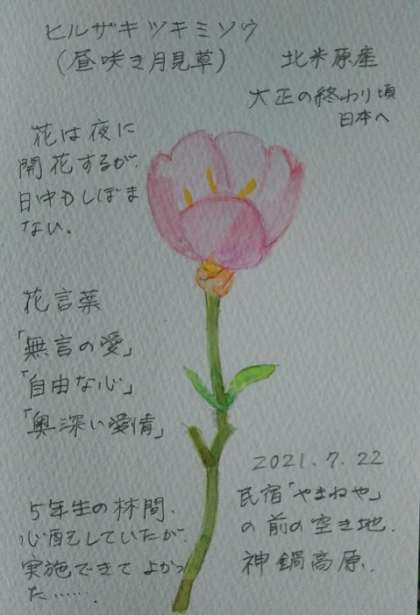 ヒルザキツキミソウ
(昼咲き月見草)
北米原産
大正の終わり頃
日本へ
花は夜に
開花するが、
日中もしぼま
ない。
花言葉
「無言の愛」
「自由な心」
「奥深い愛情」
5年生の林間、
心配していたが
実施できてよかっ
た……。
2021.7.22
民宿「やまねや」
の前の空き地。
神鍋高原。